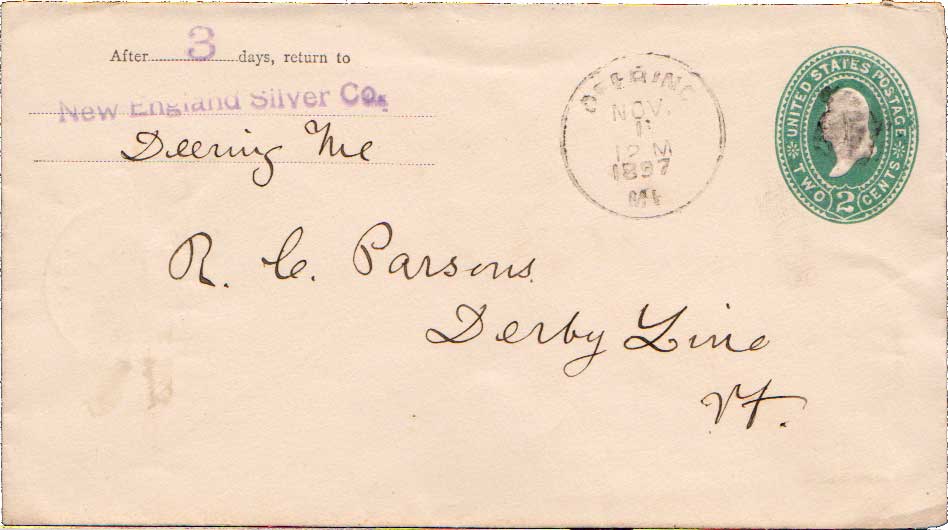 After 3 days, return to
New England Silver Co.
Deering Me
DEERING
NOV.
1
12 M
1897
ME
UNITED STATES POSTAGE
TWO 2 CENTS
R. C. Parsons
Derby Line
Vt.